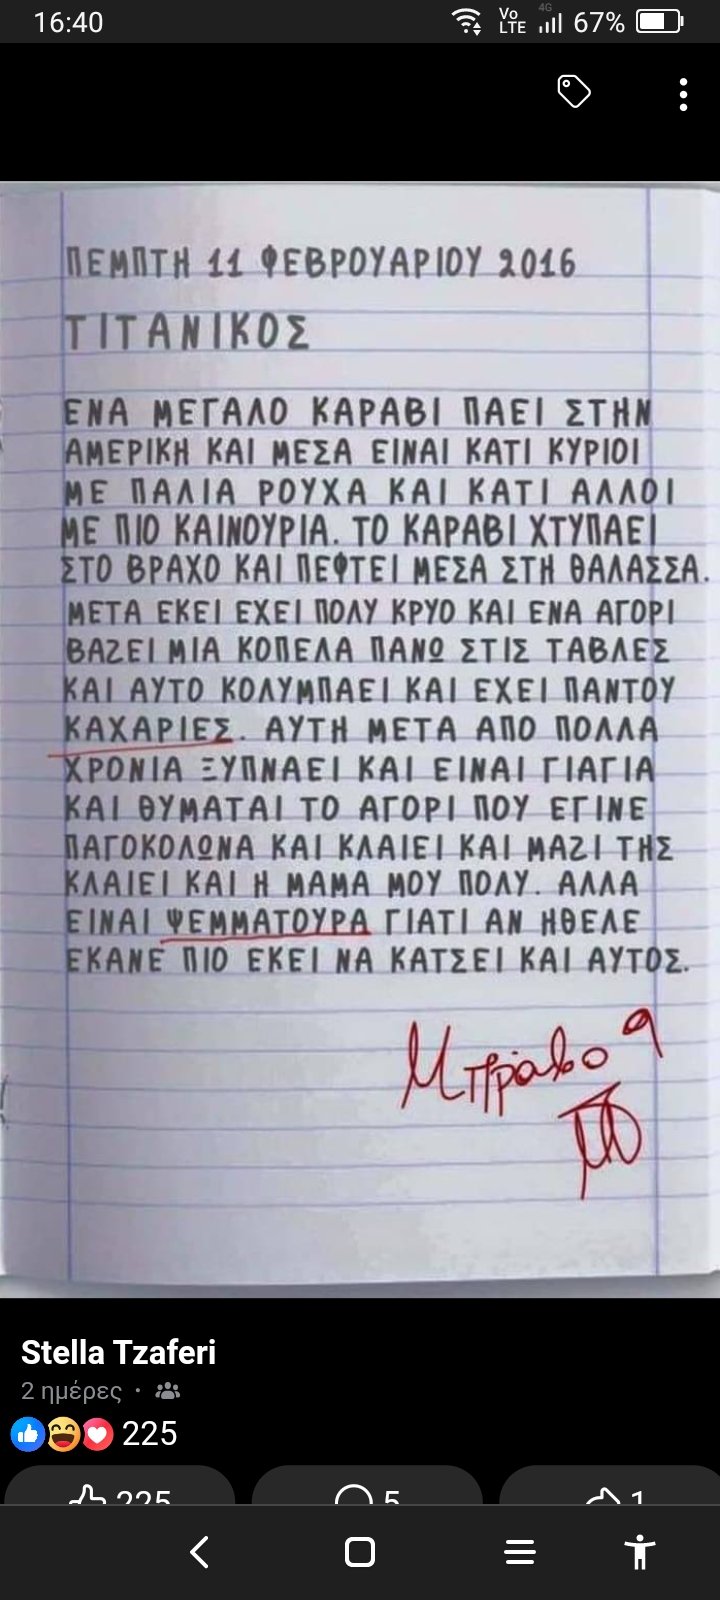 16:40
Vo
LTE
4G
67%
ΠΕΜΠΤΗ 11 ΦΕΒΡΟΥΑΡΙΟΥ 2016
ΤΙΤΑΝΙΚΟΣ
ΕΝΑ ΜΕΓΑΛΟ ΚΑΡΑΒΙ ΠΑΕΙ ΣΤΗΝ
ΑΜΕΡΙΚΗ ΚΑΙ ΜΕΣΑ ΕΙΝΑΙ ΚΑΤΙ ΚΥΡΙΟΙ
ΜΕ ΠΑΛΙΑ ΡΟΥΧΑ ΚΑΙ ΚΑΤΙ ΑΛΛΟΙ
ΜΕ ΠΙΟ ΚΑΙΝΟΥΡΙΑ. ΤΟ ΚΑΡΑΒΙ ΧΤΥΠΑΕΙ
ΣΤΟ ΒΡΑΧΟ ΚΑΙ ΠΕΦΤΕΙ ΜΕΣΑ ΣΤΗ ΘΑΛΑΣΣΑ.
ΜΕΤΑ ΕΚΕΙ ΕΧΕΙ ΠΟΛΥ ΚΡΥΟ ΚΑΙ ΕΝΑ ΑΓΟΡΙ
ΒΑΖΕΙ ΜΙΑ ΚΟΠΕΛΑ ΠΑΝΩ ΣΤΙΣ ΤΑΒΛΕΣ
ΚΑΙ ΑΥΤΟ ΚΟΛΥΜΠΑΕΙ ΚΑΙ ΕΧΕΙ ΠΑΝΤΟΥ
ΚΑΧΑΡΙΕΣ. ΑΥΤΗ ΜΕΤΑ ΑΠΟ ΠΟΛΛΑ
ΧΡΟΝΙΑ ΞΥΠΝΑΕΙ ΚΑΙ ΕΙΝΑΙ ΓΙΑΓΙΑ
ΚΑΙ ΘΥΜΑΤΑΙ ΤΟ ΑΓΟΡΙ ΠΟΥ ΕΓΙΝΕ
ΠΑΓΟΚΟΛΩΝΑ ΚΑΙ ΚΛΑΙΕΙ ΚΑΙ ΜΑΖΙ ΤΗΣ
ΚΛΑΙΕΙ ΚΑΙ Η ΜΑΜΑ ΜΟΥ ΠΟΛΥ. ΑΛΛΑ
ΕΙΝΑΙ ΨΕΜΜΑΤΟΥΡΑ ΓΙΑΤΙ ΑΝ ΗΘΕΛΕ
ΕΚΑΝΕ ΠΙΟ ΕΚΕΙ ΝΑ ΚΑΤΣΕΙ ΚΑΙ ΑΥΤΟΣ.
Μπράβο 9
Stella Tzaferi
2 ημέρες ·
225
225
5
1